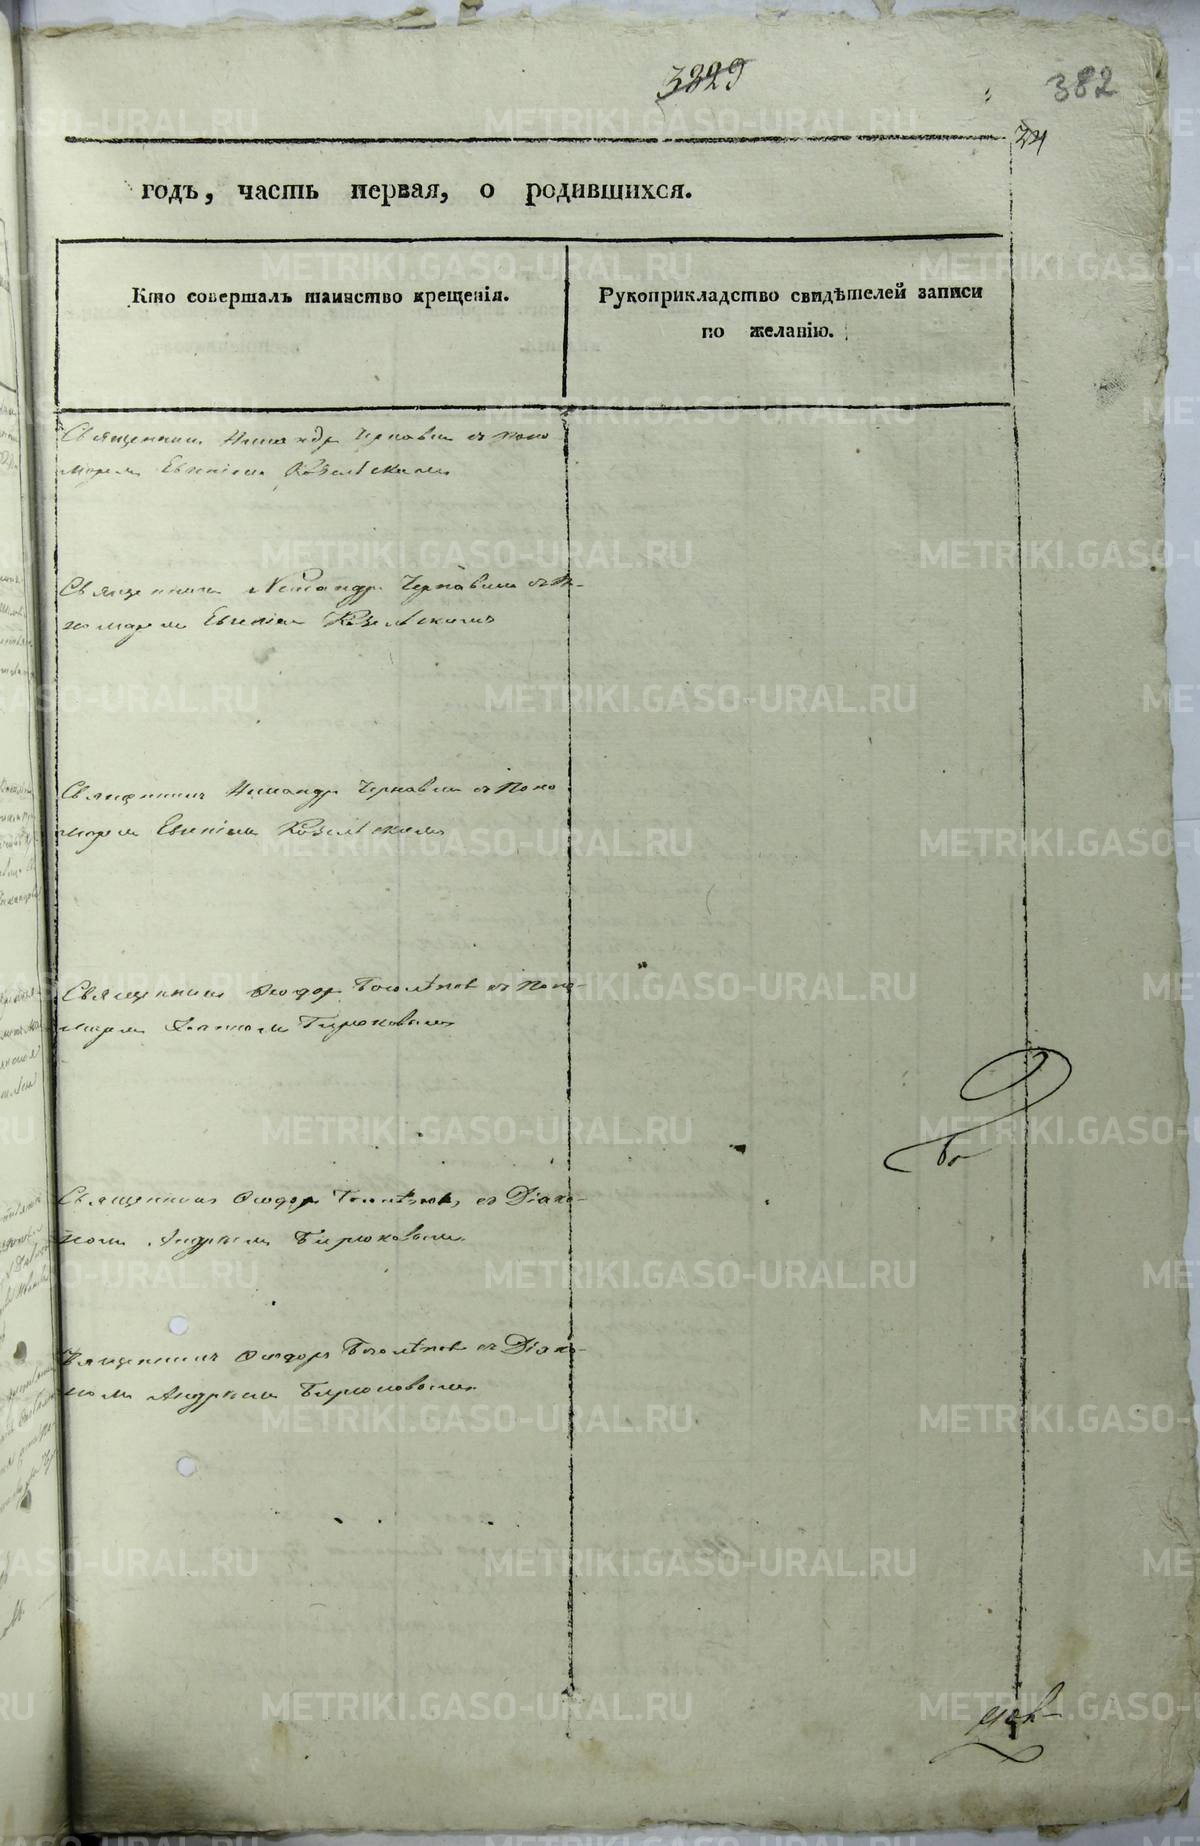 3829
382
24
годъ, часть первая, о родившихся.
Кто совершалъ таинство крещенія.
Рукоприкладство свидѣтелей записи
по желанію.
Священникъ Никандръ Чернавинъ съ поно
маремъ Евгеніемъ Козельскимъ
Священникъ Никандръ Чернавинъ съ по-
номаремъ Евгеніемъ Козельскимъ
Священникъ Никандръ Чернавинъ съ поно
маремъ Евгеніемъ Козельскимъ
Священникъ Ѳеодоръ Боголѣповъ съ поно-
маремъ Бирюковымъ
Священникъ Ѳеодоръ Боголѣповъ съ Діако-
номъ Андреемъ Бирюковымъ
Священникъ Ѳеодоръ Боголѣповъ съ Діако-
номъ Андреемъ Бирюковымъ
METRIKI.GASO-URAL.RU